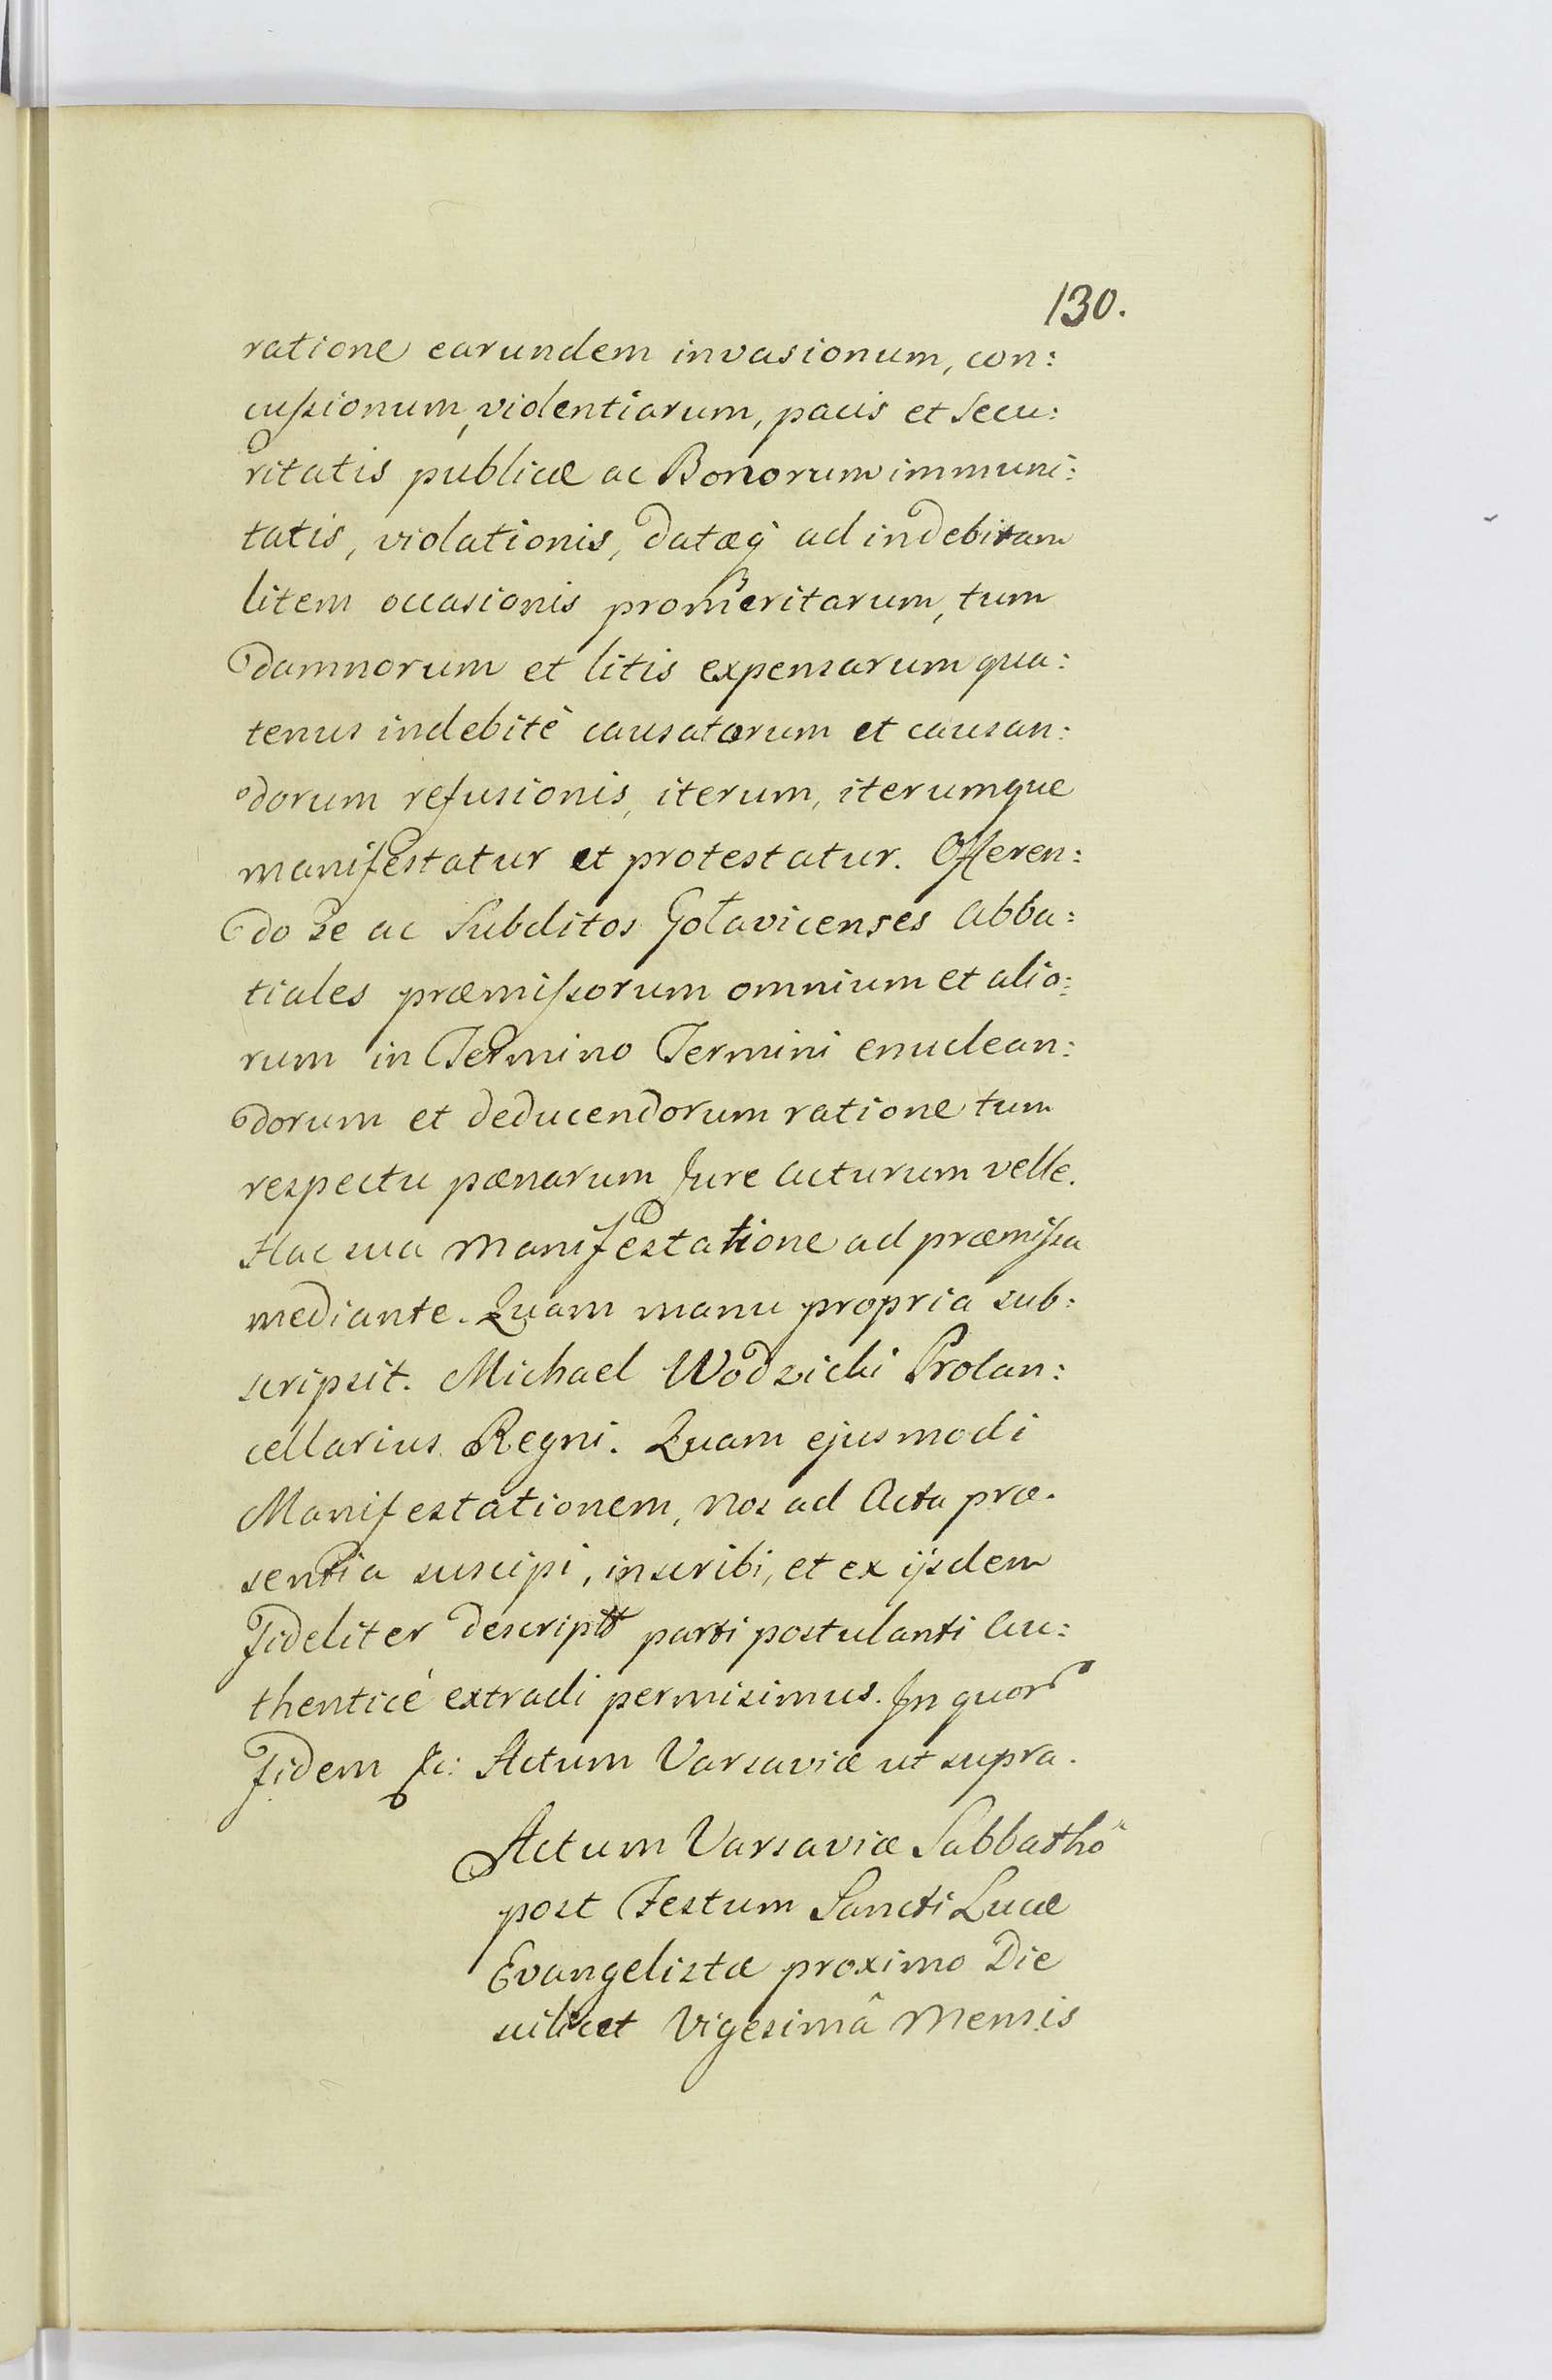 130.
ratione earundem invasionum, con:
cussionum, violentiarum, pacis et Secu:
ritatis publicæ ac Bonorum immuni:
tatis, violationis, datæq̀ ad indebitam
litem occasionis promeritarum, tum
damnorum et litis expensarum qua:
tenus indebitè causatorum et causan:
dorum refusionis, iterum, iterumque
manifestatur et protestatur. Offeren:
do se ac Subditos Gołavicenses Abba:
tiales præmissorum omnium et alio:
rum in Termino Termini enuclean:
dorum et deducendorum ratione tum
respectu pænarum Jure Acturum velle.
Hac sua Manifestatione ad præmissa
mediante. Quam manu propria sub:
scripsit. Michael Wodzicki Procan:
cellarius Regni. Quam ejusmodi
Manifestationem, Nos ad Acta præ.
sentia suscipi, inscribi, et ex ijsdem
Fideliter descriptã parti postulanti Au:
thenticè extradi permisimus. In quorũ
Fidem &c: Actum Varsaviæ ut supra.
Actum Varsaviæ Sabbathô
post Festum Sancti Lucæ
Evangelistæ proximo Die
scilicet Vigesimâ Mensis